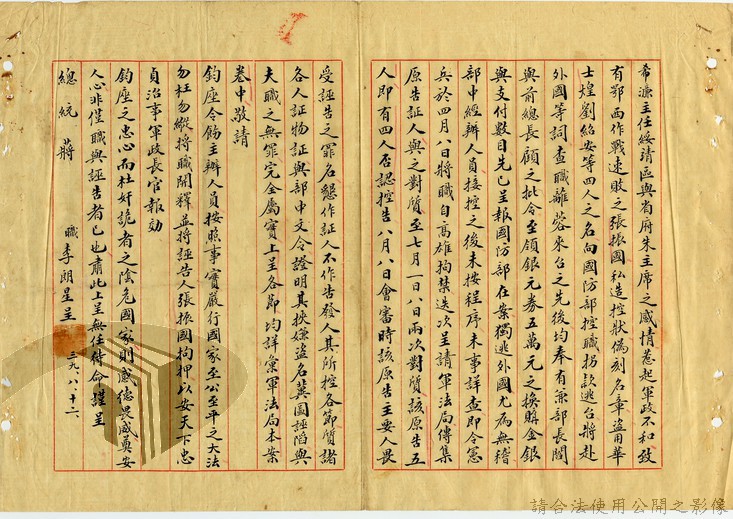 希濂主任綏靖區與省府朱主席之感情惹起軍政不和致
有鄂西作戰速敗之張振國私造控狀偽刻名章盜用華
士煌劉紹安等四人之名向國防部控職拐款逃台將赴
外國等詞查職離蓉來台之先後均奉有兼部長閻
與前總長顧之批令至領銀元券五萬元之換購金銀
與支付數目先已呈報國防部在案獨逃外國尤為無稽
部中經辦人員接控之後未按程序未事詳查即令憲
兵於四月八日將職自高雄拘禁迭次呈請軍法局傳集
原告証人與之對質至七月一日八日兩次對質該原告五
人即有四人否認控告八月八日會審時該原告主要人畏
受誣告之罪名懇作証人不作告發人其所控各節質諸
各人証物証與部中文令證明其挾嫌盜名冀圖誣陷與
夫職之無罪完全屬實上呈各節均詳彙軍法局本案
卷中敬請
鈞座令飭主辦人員按照事實嚴行國家至公至平之大法
勿枉勿縱將職開釋並將誣告人張振國拘押以安天下忠
貞治事軍政長官報効
鈞座之忠心而杜奸詭者之陰危國家則感德畏威奠安
人心非僅職與誣告者已也肅此上呈無任待命謹呈
總統 蔣
職李朗星呈
三九、八、十二
請合法使用公開之影像